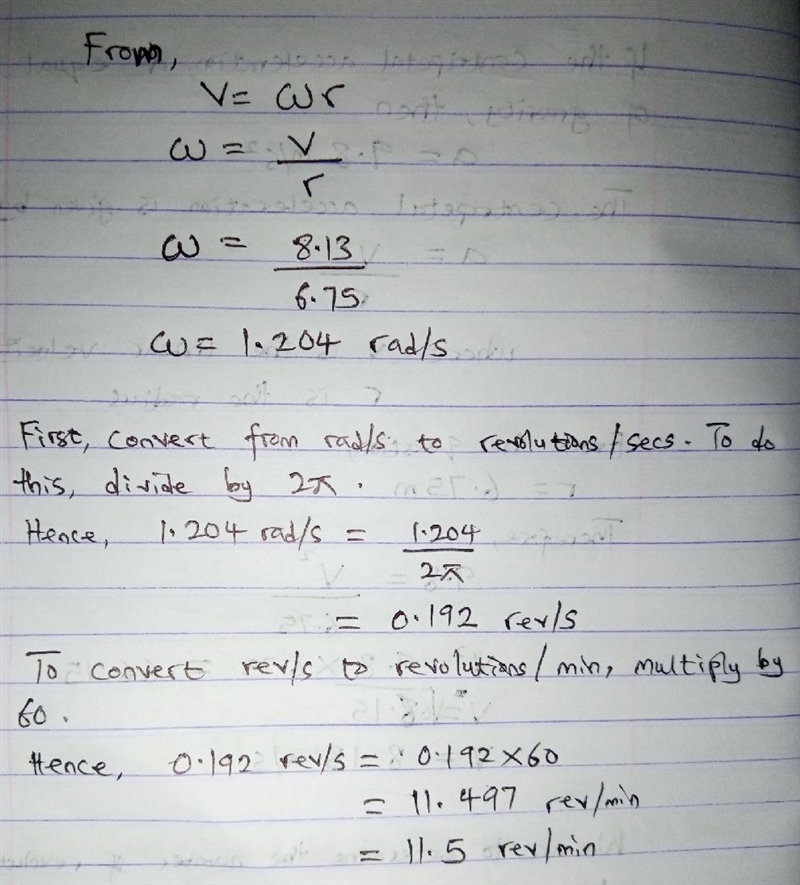 From,
V = ωr
ω = V/r
ω = 8.13/6.75
ω = 1.204 rad/s
First, convert from rad/s to revolutions/secs. To do
this, divide by 2π.
Hence, 1.204 rad/s = 1.204/2π
= 0.192 rev/s
To convert rev/s to revolutions/min, multiply by
60.
Hence, 0.192 rev/s = 0.192 × 60
= 11.497 rev/min
= 11.5 rev/min